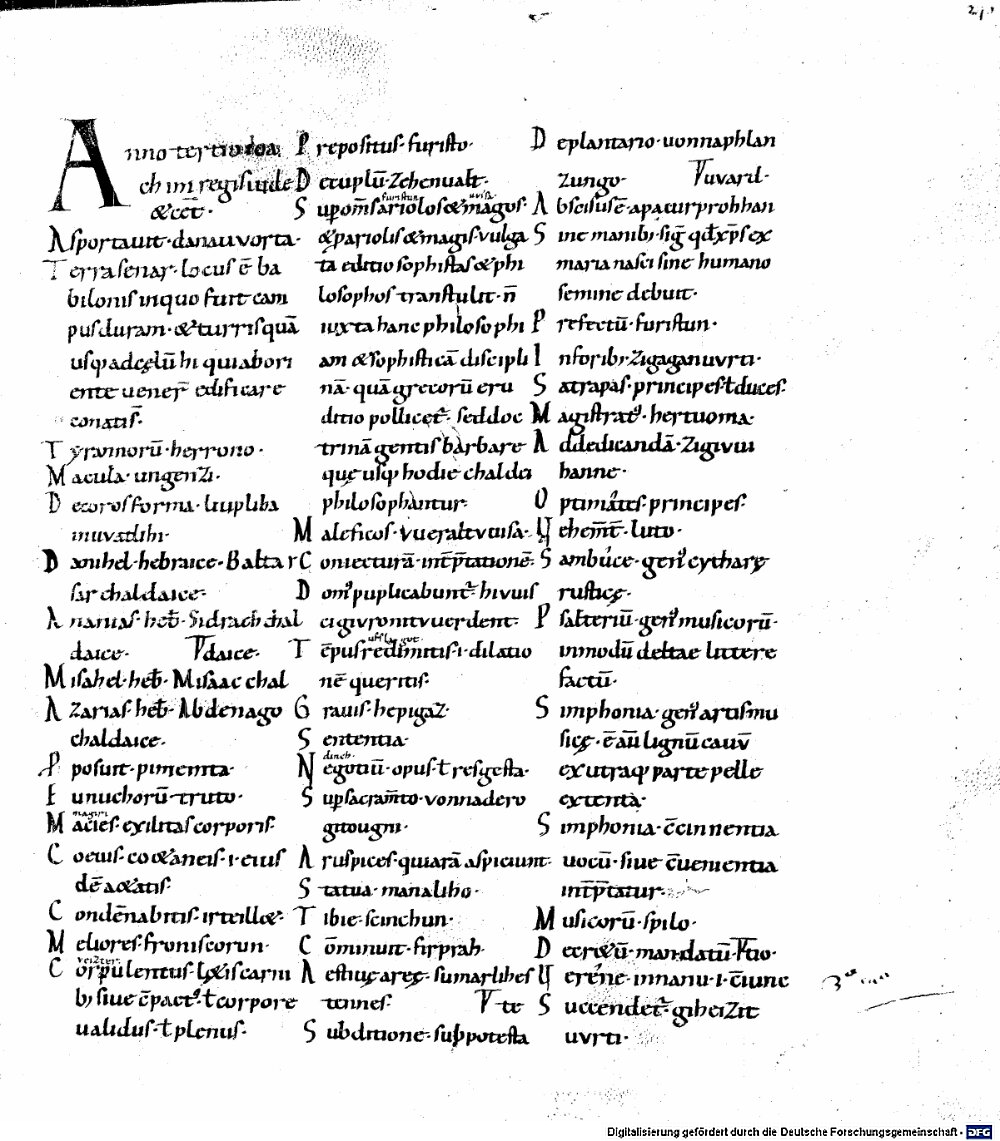 Anno tertio ioa
chim regis iudę
&cet̄·
Asportauit· danauuorta·
Terra senar· locus ē ba
bilonis in quo fuit cam
pus duram· & turris quā
usq; ad cęlū hi qui ab ori
ente uener̄ edificare
conati s̄·
Tyrannorū· herrono·
Macula· ungenzi·
Decoros forma· liupliba
inuuatlihi·
Danihel· hebraice· Balta
sar chaldaice·
Ananias· heb̄· Sidrach chal
daice· daice·
Misahel· heb̄· Misaac chal
Azarias· heb̄· Abdenago
chaldaice·
Posuit· pimeinta·
Eunuchorū· truto·
magari
Macies· exilitas corporis·
Coeuis· co&aneis· i· eius
dē a&atis·
Condēnabitis· irteillet·
Meliores· froniscorun·
veizter·
Corpulentus· l&is carni
b; siue c̄pact᾽· ł corpore
ualidus· ł plenus·
Prepositus· furisto·
Decuplū· Zehenualt·
furistun uuisa
Sup om̄s ariolos & magos·
& pariolis & magis· vulga
ta editio sophistas & phi
losophos transtulit· n̄
iuxta hanc philosophi
am & sophisticā discipli
nā· quā grecorū eru
ditio pollicet᷑· sed doc
trinā gentis barbare
quę usq; hodie chaldei
philosophantur·
Maleficos· vueraltvuisa·
Coniecturā· int̄p̄tationē·
Dom᾽ puplicabunt᷑· hivuis
ci givronituuerdent·
T ēpus redimitis· i· dilatio
nē queritis·
Grauis· hepigaz·
Sententia·
dinch·
Negotiū· opus· ł res gesta·
Sup sacram̄to· vonnadero
gitougni·
Aruspices· qui arā aspiciunt·
Statua· manaliho·
Tibie· scinchun·
Cōminuit· firprah·
Aestiuę areę· sumarlihes
tennes· te
Sub ditione· sub potesta
De plantario· uonnaphlan
zungo· Vuard·
Abscisus ē· apacurprohhan
Sine manib;· sig̅· qd̄ xp̄s ex
maria nasci sine humano
semine debuit·
Prefectū· furistun·
In forib;· Zigaganuvrti·
Satrapas· principes ł duces·
Magistrat᾽· hertuoma·
Ad dedicandā· Zigivui
hanne·
Optimates· principes·
Vehem̄t̄· luto·
Sambuce· gen᾽ cytharę
rusticę·
Psalteriū· gen᾽ musicorū·
in modū deltae littere
factū·
Simphonia· gen᾽ artis mu
sicę· ē aū lignū cauū
ex utraq; parte pelle
extenta·
Simphonia· c̄cinnentia
uocū· siue c̄uenientia
int̄p̄tatur·
Musicorū· spilo·
Decr&ū· mandatū· tio·
Verēne· in nanu· i· c̄iunc
Succendet᷑· giheizit
uvrti·
Digitalisierung gefördert durch die Deutsche Forschungsgemeinschaft - DFG